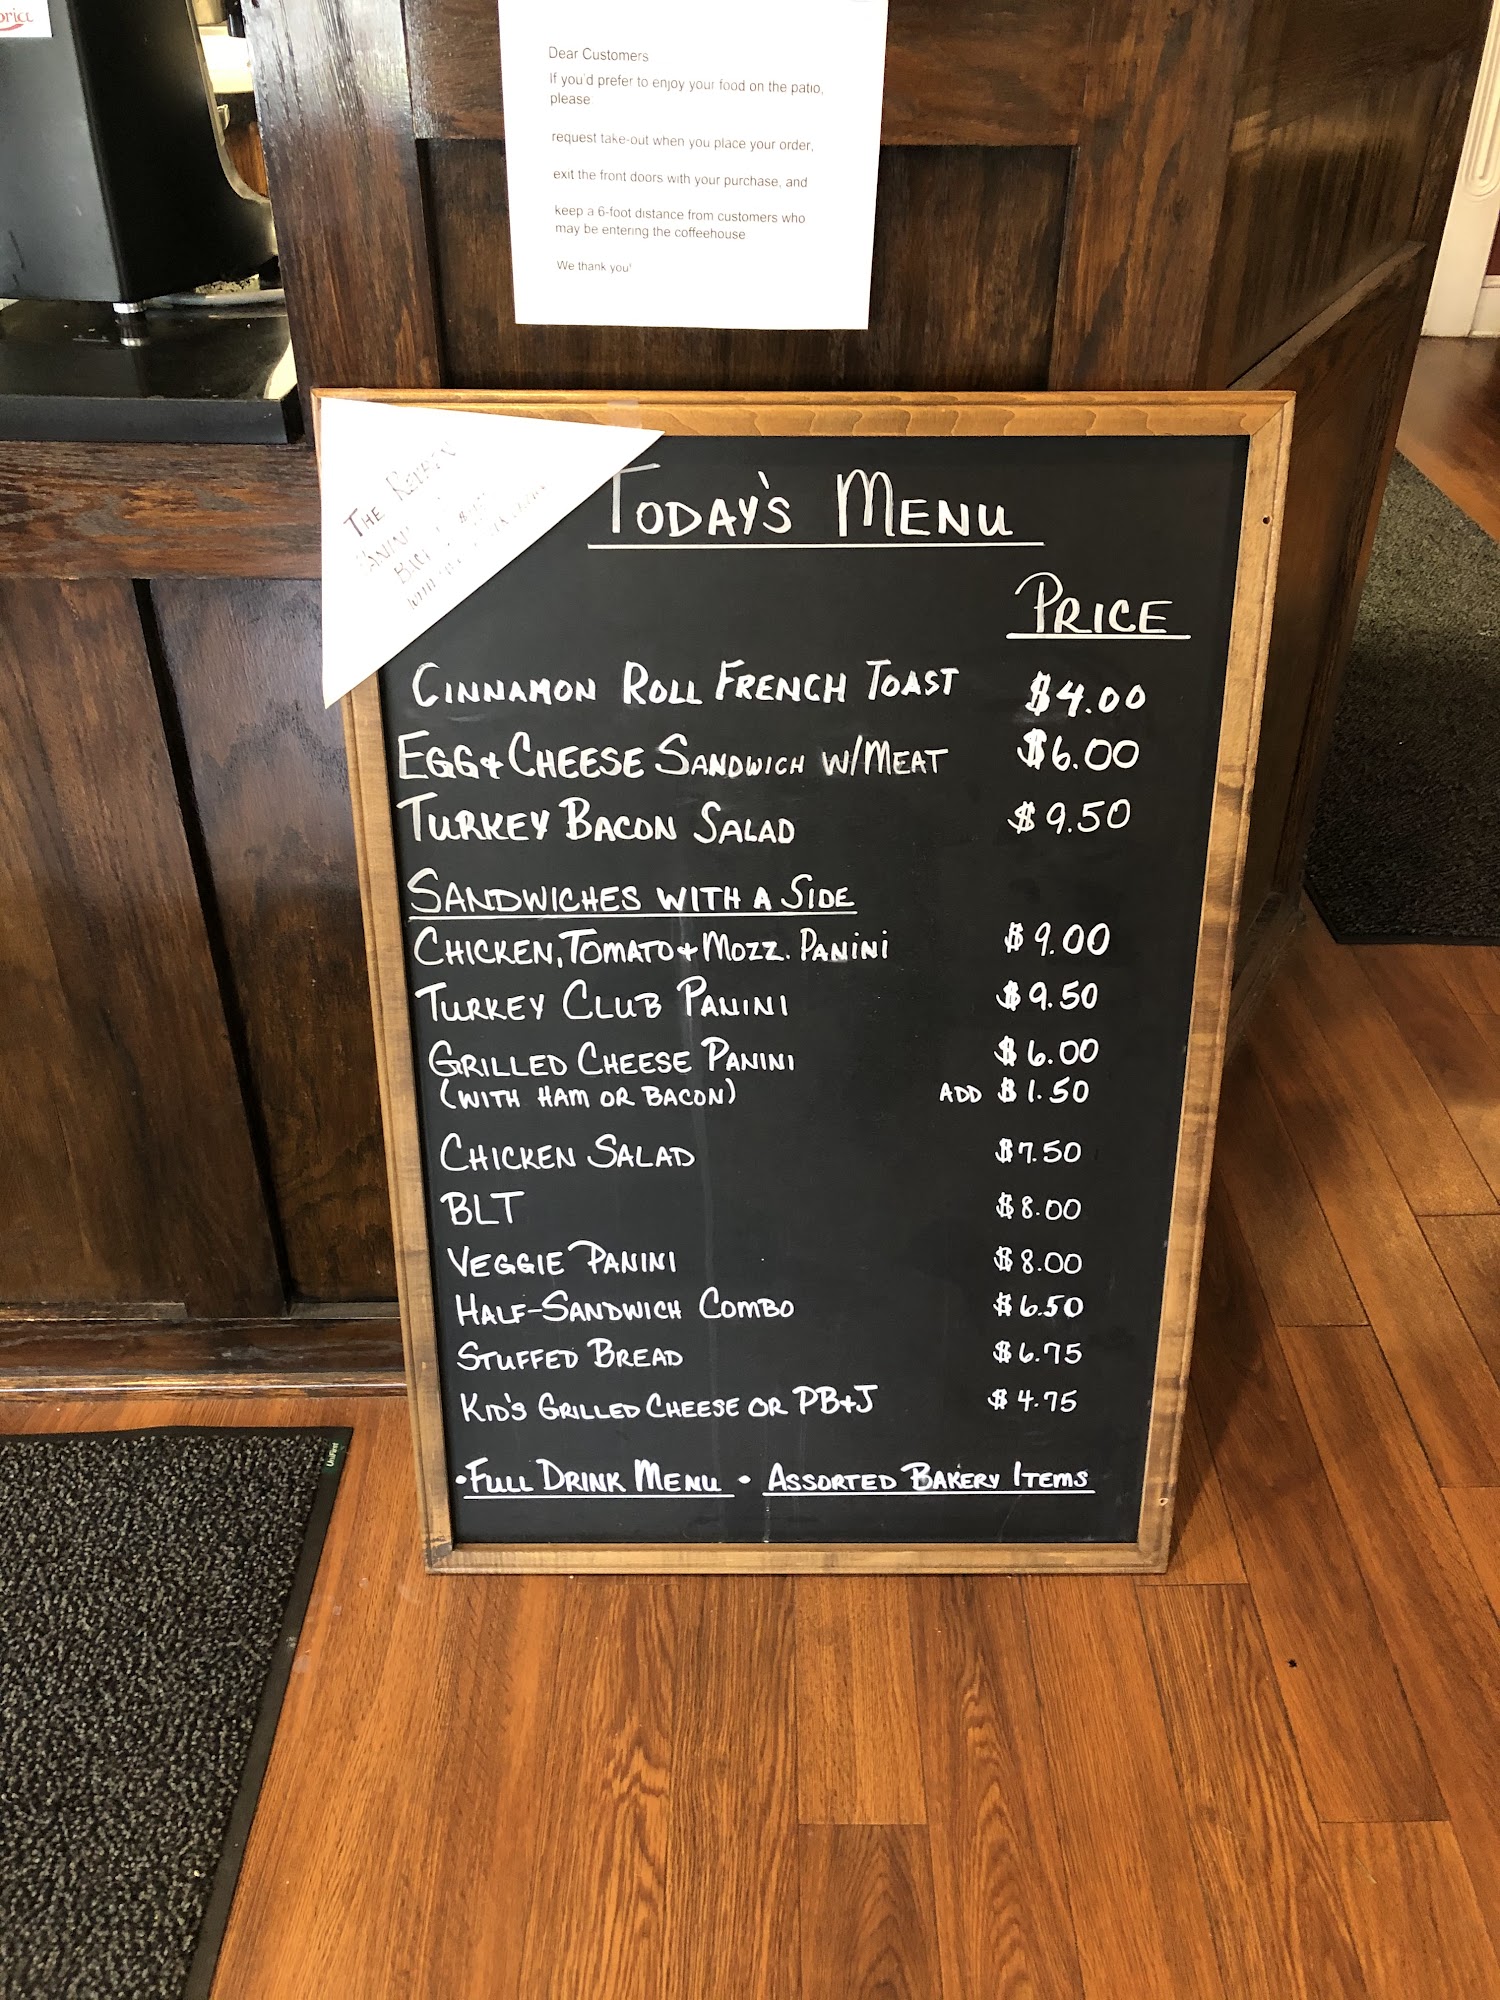 Dear Customers
If you'd prefer to enjoy your food on the patio,
please
request take-out when you place your order,
exit the front doors with your purchase, and
keep a 6-foot distance from customers who
may be entering the coffeehouse
We thank you!
THE REUBEN
PANINI
BACK
TODAY'S MENU
PRICE
CINNAMON ROLL FRENCH TOAST $4.00
EGG + CHEESE SANDWICH W/MEAT $6.00
TURKEY BACON SALAD $9.50
SANDWICHES WITH A SIDE
CHICKEN, TOMATO + MOZZ. PANINI $9.00
TURKEY CLUB PANINI $9.50
GRILLED CHEESE PANINI $6.00
(WITH HAM OR BACON) ADD $1.50
CHICKEN SALAD $7.50
BLT $8.00
VEGGIE PANINI $8.00
HALF-SANDWICH COMBO $6.50
STUFFED BREAD $6.75
KID'S GRILLED CHEESE OR PB+J $4.75
• FULL DRINK MENU • ASSORTED BAKERY ITEMS
UniFirst